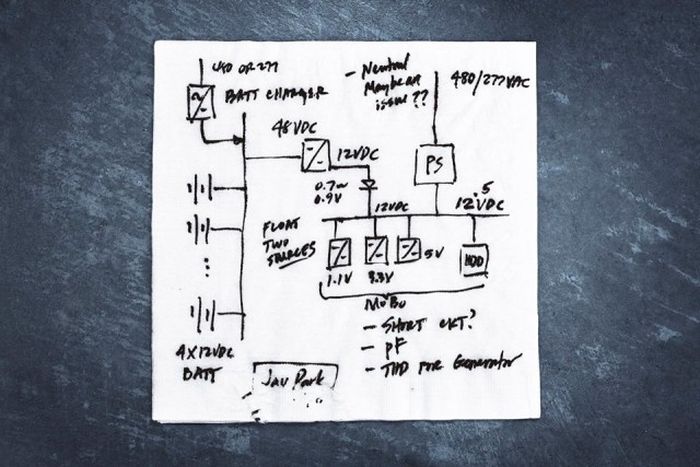 480 OR 277
BATT CHARGER
48 VDC
12VDC
0.7~
0.9V
- Neutral
Maybe an
issue??
480/277VAC
PS
12.5
VDC
12VDC
FLOAT
TWO
SOURCES
1.1V
3.3V
5V
HDD
MOBO
- SHORT CKT?
- PF
- THD FOR Generator
4X12VDC
BATT
Jay Park